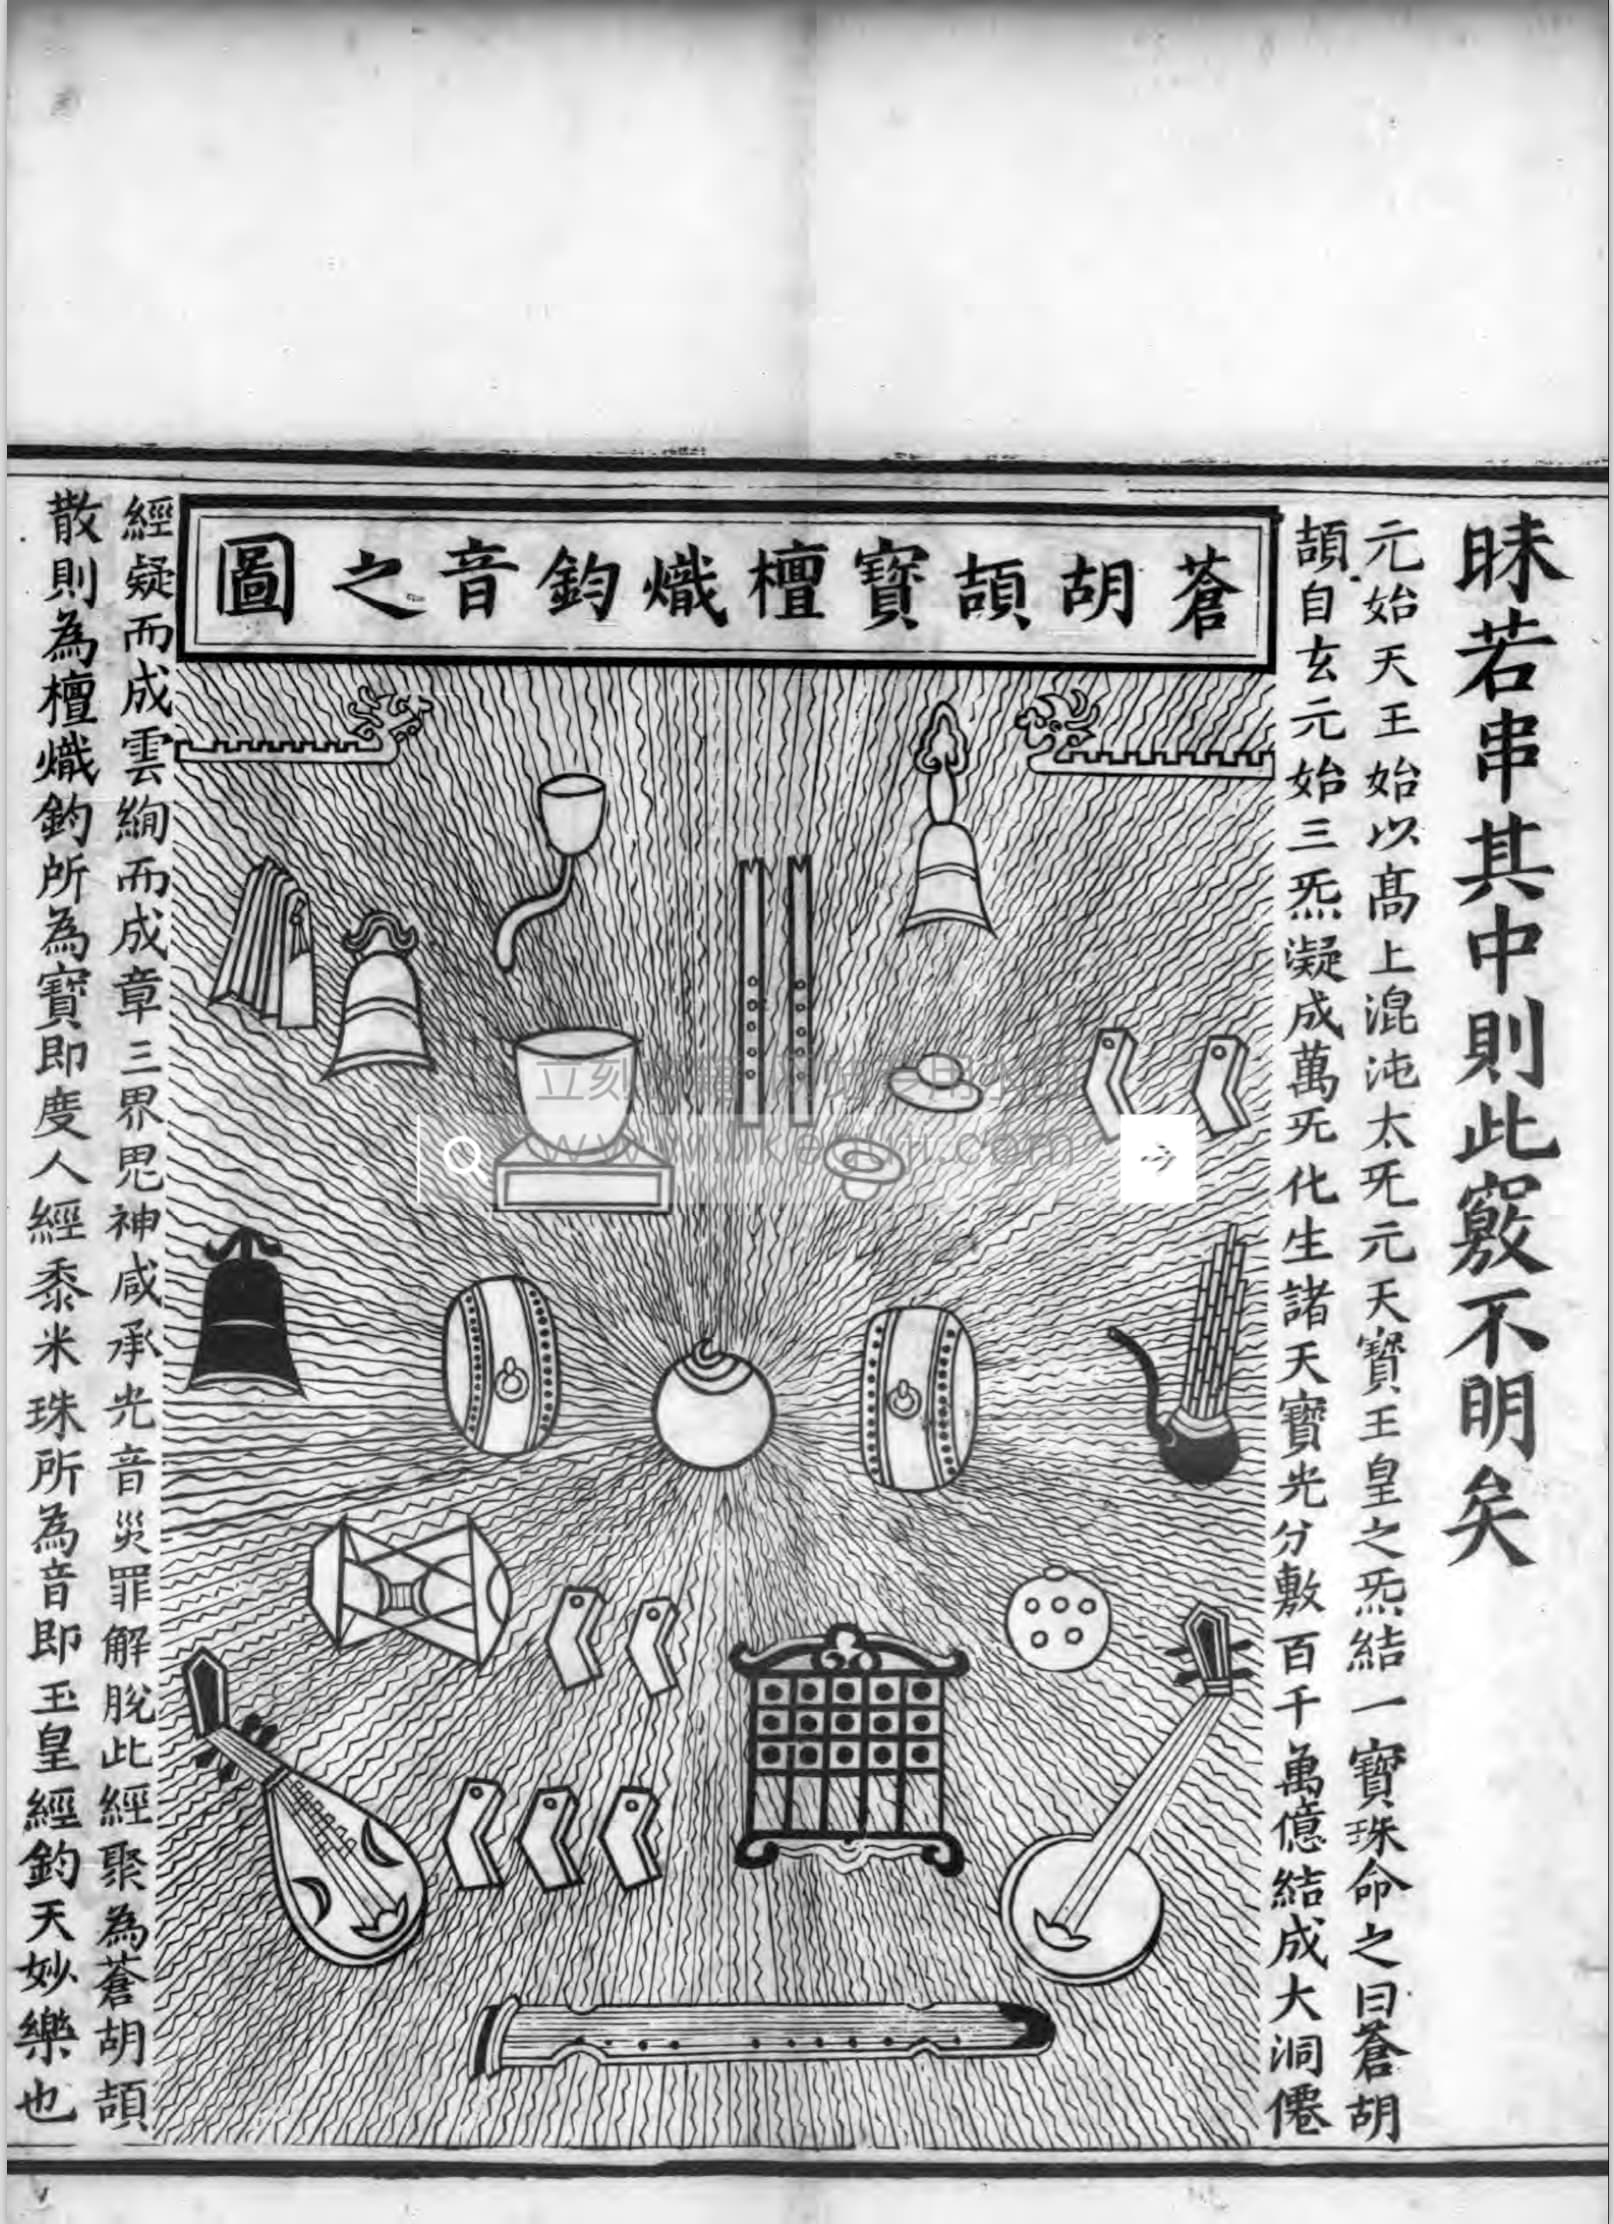 昧若串其中則此竅不明矣
元始天王始以髙上混沌太炁元天寶王皇之炁結一寶珠命之曰蒼胡
頡自玄元始三炁凝成萬炁化生諸天寶光分敷百千萬億結成大洞僊
蒼胡頡寶檀熾鈞音之圖
經疑而成雲絢而成章三界鬼神咸承光音災罪解脫此經聚為蒼胡頡
散則為檀熾鈞所為寶即度人經黍米珠所為音即玉皇經鈞天妙樂也
www.like
.com